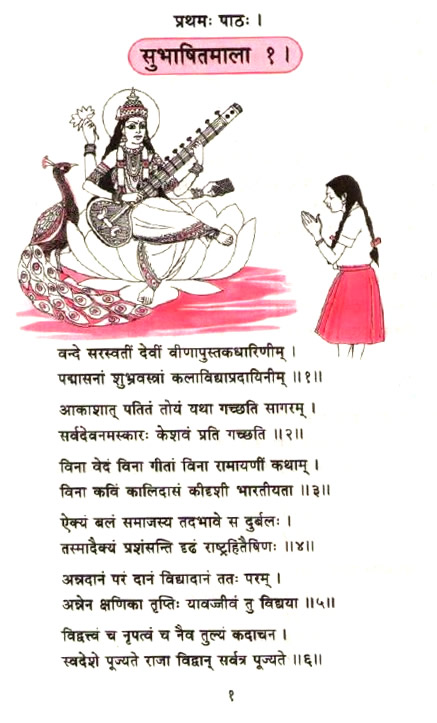 प्रथमः पाठः ।
सुभाषितमाला १ ।
वन्दे सरस्वतीं देवीं वीणापुस्तकधारिणीम् ।
पद्मासनां शुभ्रवस्त्रां कलाविद्याप्रदायिनीम् ॥१॥
आकाशात् पतितं तोयं यथा गच्छति सागरम् ।
सर्वदेवनमस्कारः केशवं प्रति गच्छति ॥२॥
विना वेदं विना गीतां विना रामायणीं कथाम् ।
विना कविं कालिदासं कीदृशी भारतीयता ॥३॥
ऐक्यं बलं समाजस्य तदभावे स दुर्बलः ।
तस्मादैक्यं प्रशंसन्ति दृढं राष्ट्रहितैषिणः ॥४॥
अन्नदानं परं दानं विद्यादानं ततः परम् ।
अन्नेन क्षणिका तृप्तिः यावज्जीवं तु विद्यया ॥५॥
विद्वत्त्वं च नृपत्वं च नैव तुल्यं कदाचन ।
स्वदेशे पूज्यते राजा विद्वान् सर्वत्र पूज्यते ॥६॥
१